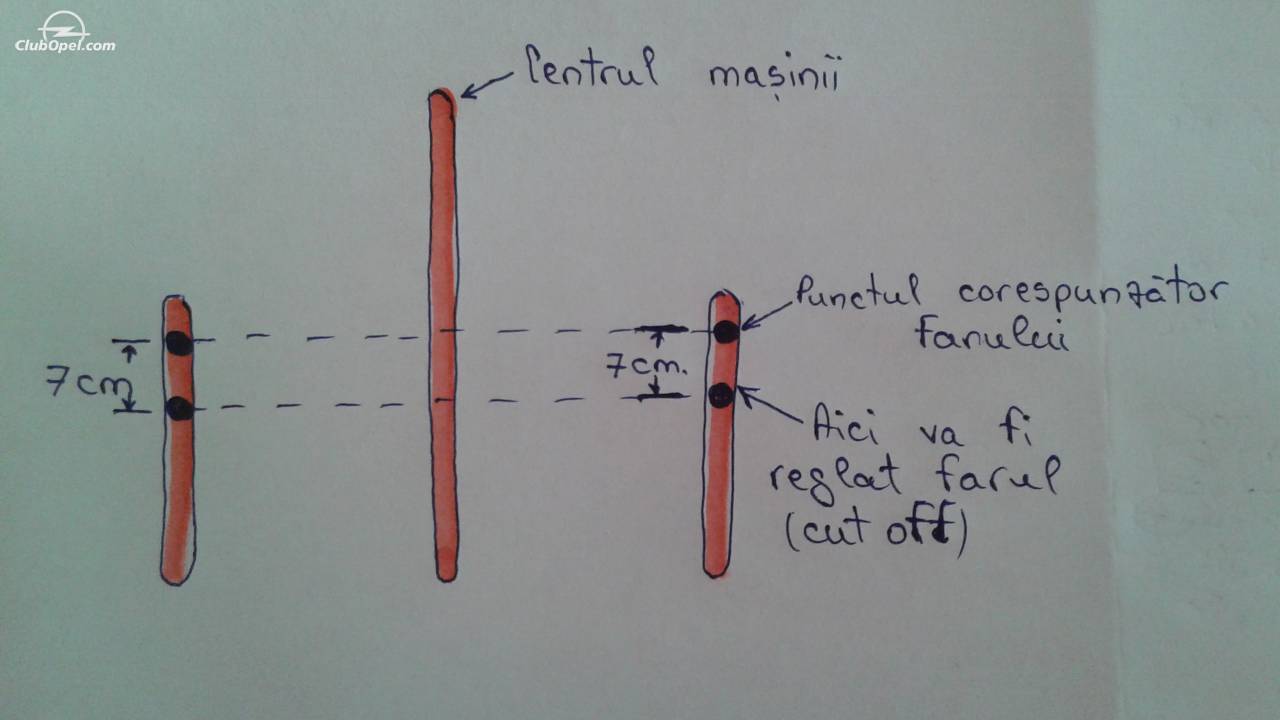 ClubOpel.com
Centrul mașinii
Punctul corespunzător
farului
7cm
7cm.
Aici va fi
reglat farul
(cut off)